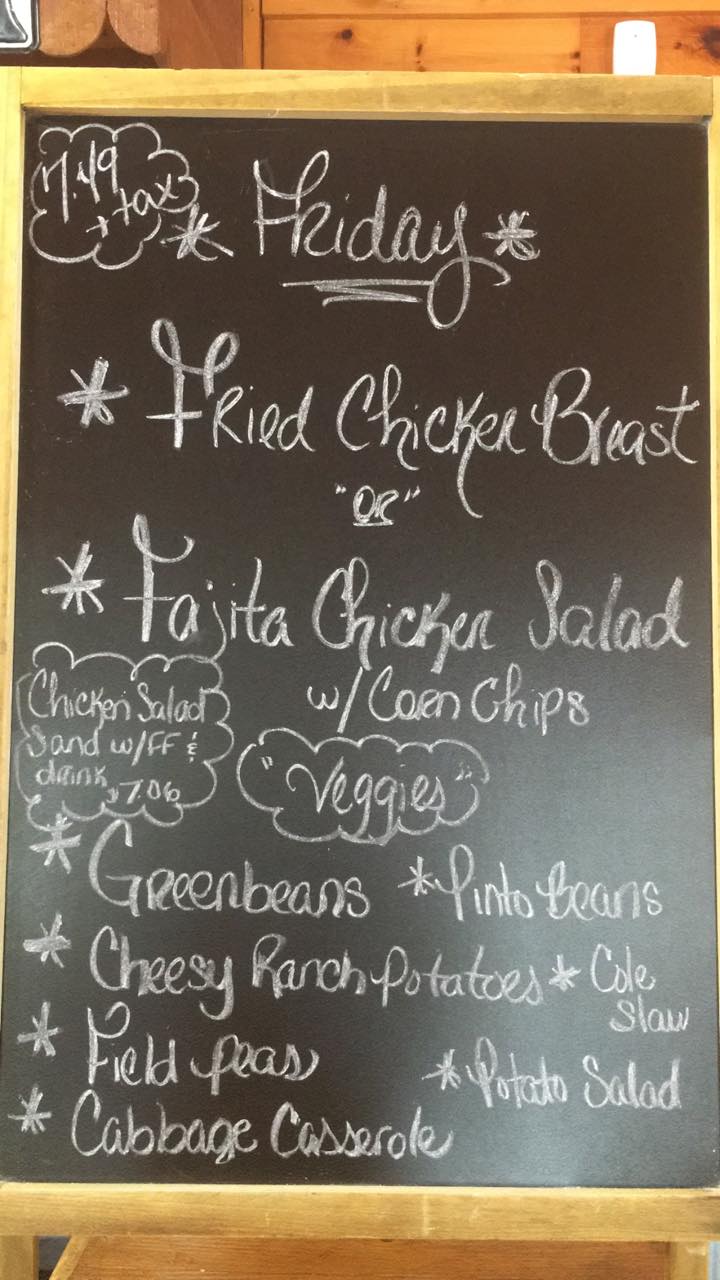 7.49
+ tax
* Friday *
* Fried Chicken Breast
"OR"
* Fajita Chicken Salad
w/ Corn Chips
Chicken Salad
Sand w/FF &
drink $7.06
"Veggies"
* Greenbeans * Pinto Beans
* Cheesy Ranch Potatoes * Cole
Slaw
* Field peas * Potato Salad
* Cabbage Casserole